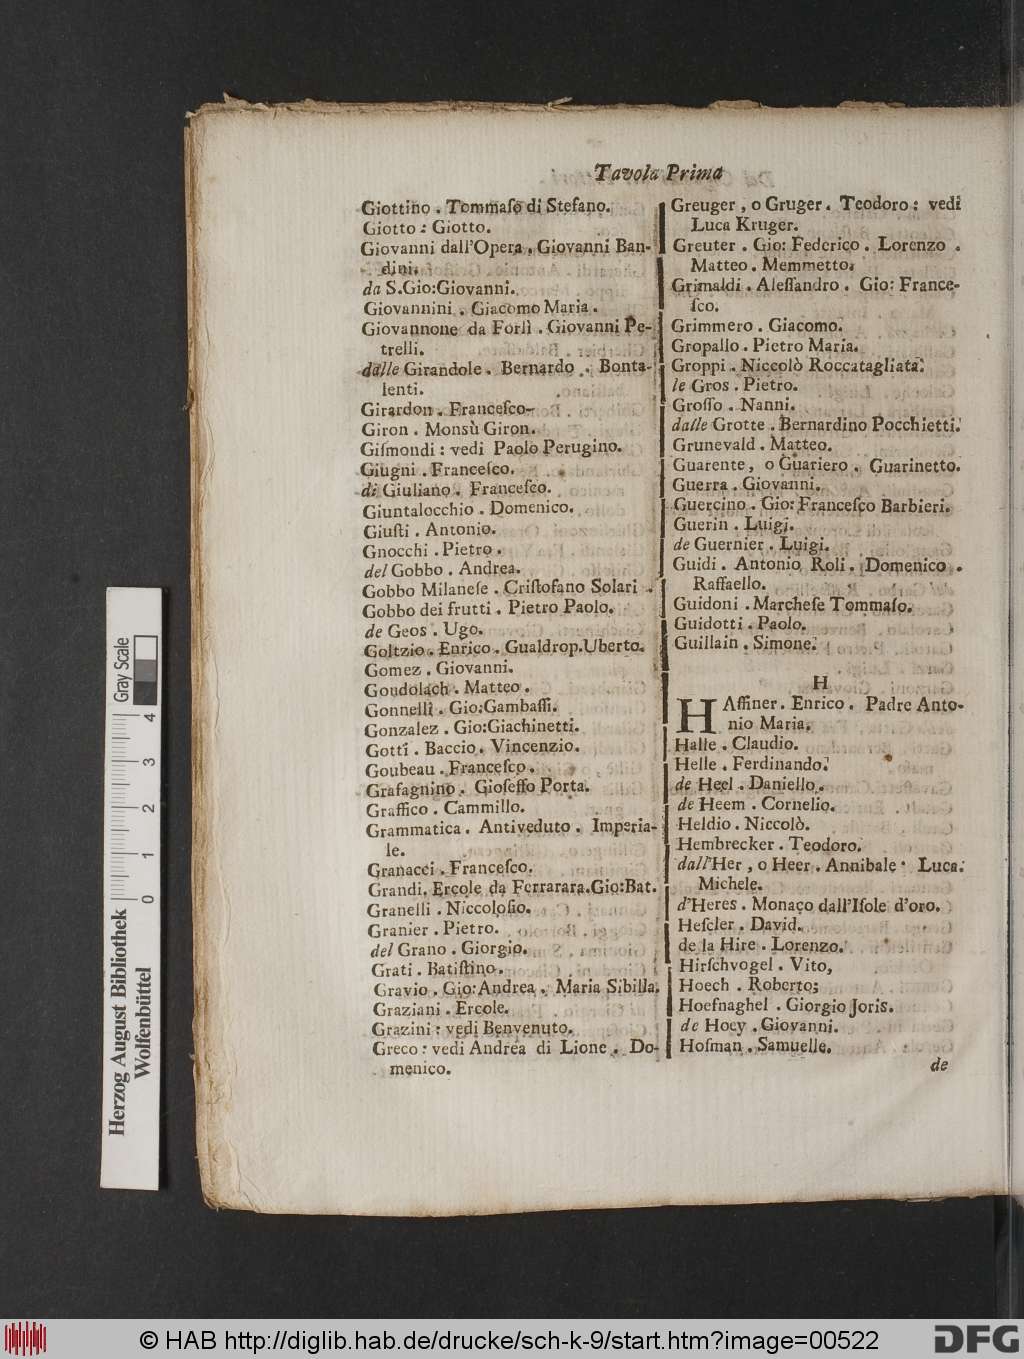 Tavola Prima
Giottino . Tommaſo di Stefano.
Giotto : Giotto.
Giovanni dall'Opera . Giovanni Ban-
dini.
da S.Gio:Giovanni.
Giovannini . Giacomo Maria .
Giovannone da Forlì . Giovanni Pe-
trelli.
dalle Girandole . Bernardo . Bonta-
lenti.
Girardon . Franceſco.
Giron . Monsù Giron.
Giſmondi : vedi Paolo Perugino.
Giugni . Franceſco.
di Giuliano . Franceſco.
Giuntalocchio . Domenico.
Giuſti . Antonio.
Gnocchi . Pietro .
del Gobbo . Andrea.
Gobbo Milaneſe . Criſtofano Solari .
Gobbo dei frutti . Pietro Paolo.
de Geos . Ugo.
Goltzio . Enrico . Gualdrop.Uberto.
Gomez . Giovanni.
Goudolach . Matteo .
Gonnelli . Gio:Gambaſſi.
Gonzalez . Gio:Giachinetti.
Gotti . Baccio . Vincenzio.
Goubeau . Franceſco .
Grafagnino . Gioſeffo Porta.
Graffico . Cammillo.
Grammatica . Antiveduto . Imperia-
le.
Granacci . Franceſco.
Grandi. Ercole da Ferrarara.Gio:Bat.
Granelli . Niccoloſio.
Granier . Pietro.
del Grano . Giorgio.
Grati . Batiſtino .
Gravio . Gio:Andrea . Maria Sibilla.
Graziani . Ercole.
Grazini : vedi Benvenuto.
Greco : vedi Andrea di Lione . Do-
menico.
Greuger , o Gruger . Teodoro : vedi
Luca Kruger.
Greuter . Gio: Federico . Lorenzo .
Matteo . Memmetto.
Grimaldi . Aleſſandro . Gio: France-
ſco.
Grimmero . Giacomo.
Gropallo . Pietro Maria.
Groppi . Niccolò Roccatagliata.
le Gros . Pietro.
Groſſo . Nanni.
dalle Grotte . Bernardino Pocchietti.
Grunevald . Matteo.
Guarente , o Guariero . Guarinetto.
Guerra . Giovanni.
Guercino . Gio: Franceſco Barbieri.
Guerin . Luigi.
de Guernier . Luigi.
Guidi . Antonio Roli . Domenico .
Raffaello.
Guidoni . Marcheſe Tommaſo.
Guidotti . Paolo.
Guillain . Simone.
H
HAffiner . Enrico . Padre Anto-
nio Maria.
Halle . Claudio.
Helle . Ferdinando.
de Heel . Daniello .
de Heem . Cornelio.
Heldio . Niccolò.
Hembrecker . Teodoro.
dall'Her , o Heer . Annibale . Luca.
Michele.
d'Heres . Monaco dall'Iſole d'oro.
Heſcler . David.
de la Hire . Lorenzo.
Hirſchvogel . Vito,
Hoech . Roberto;
Hoefnaghel . Giorgio Joris.
de Hoey . Giovanni.
Hofman . Samuelle.
de
Gray Scale
0 1 2 3 4
Herzog August Bibliothek
Wolfenbüttel
© HAB http://diglib.hab.de/drucke/sch-k-9/start.htm?image=00522
DFG